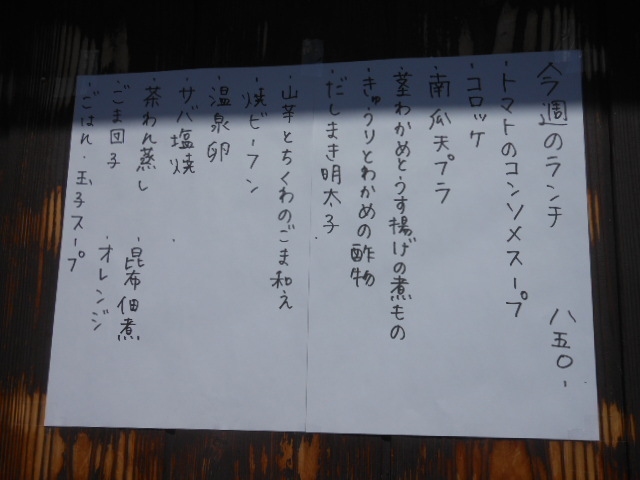 今週のランチ 八五〇.
・トマトのコンソメスープ
・コロッケ
・南瓜天プラ
・茎わかめとうす揚げの煮もの
・きゅうりとわかめの酢物
・だしまき明太子
・山芋とちくわのごま和え
・焼ビーフン
・温泉卵
・サバ塩焼
・茶わん蒸し ・昆布佃煮
・ごま団子 ・オレンジ
・ごはん・玉子スープ